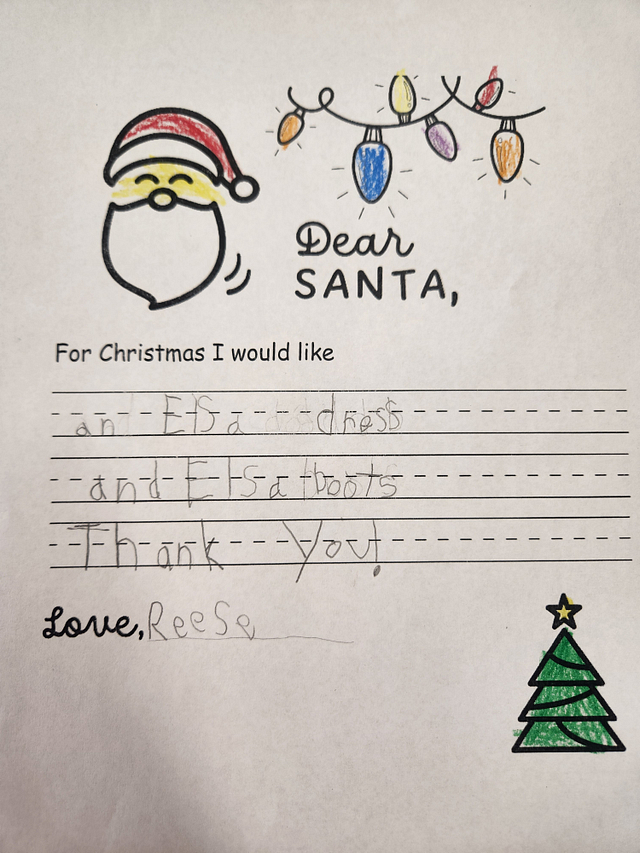 Dear
SANTA,
For Christmas I would like
an ElSa dress
and ElSa boots
Thank You!
Love, ReeSe